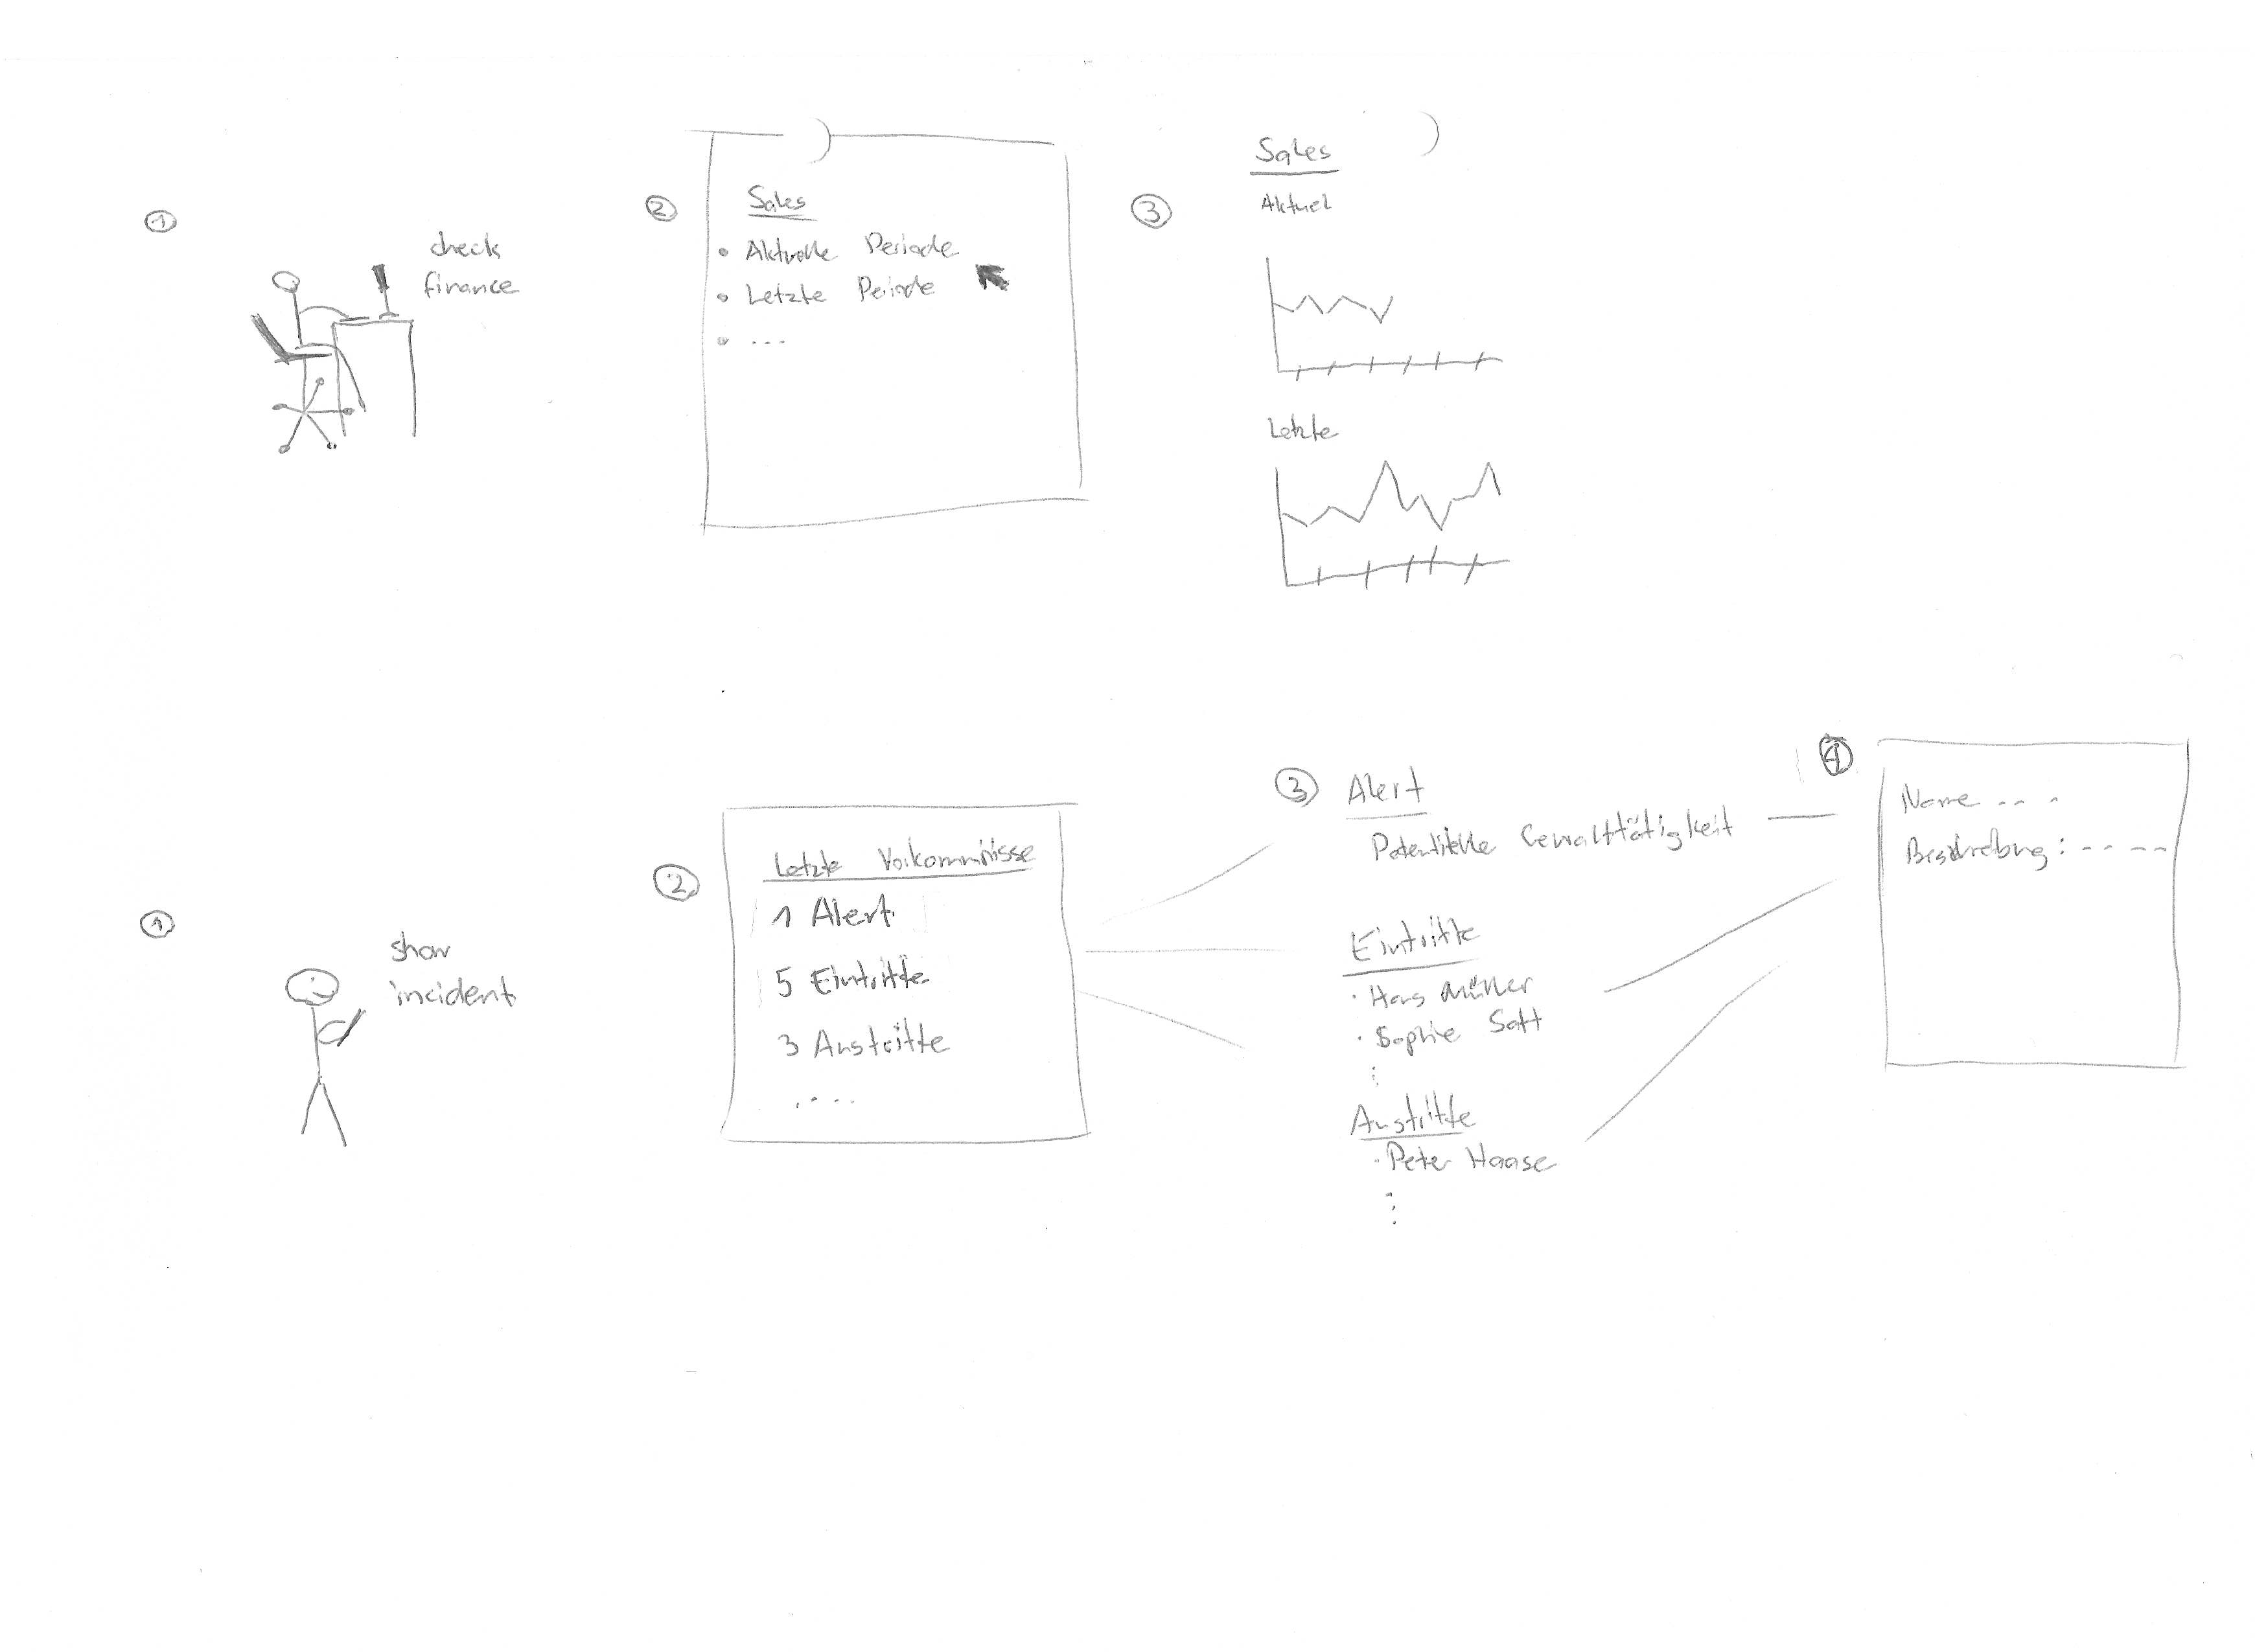 1
check
finance
2
Sales
• Aktuelle Periode
• Letzte Periode
• ---
3
Sales
Aktuel
Letzte
1
show
incident
2.
Letzte Vorkommnisse
1 Alert
5 Eintritte
3 Austritte
.....
3
Alert
Potentielle Gewalttätigkeit
Eintritte
· Hans Müller
· Sophie Sott
⋮
Austritte
· Peter Haase
⋮
4
Name - - -
Beschreibung: - - - -